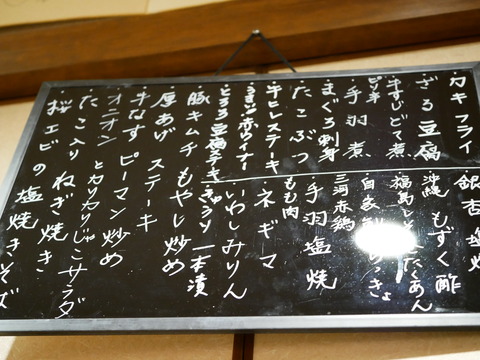 カキフライ
ざる豆腐
牛すじどて煮
ピリ辛
手羽煮
まぐろ刺身
たこぶつ
牛ヒレステーキ
うまい赤ウィンナー
とろろ豆腐ステーキ
豚キムチもやし炒め
厚あげステーキ
牛なすピーマン炒め
オニオンとカリカリじゃこサラダ
たこ入りねぎ焼き
桜エビの塩焼きそば
銀杏塩
沖縄もずく酢
福島
たくあん
自家
三河赤鶏
手羽塩焼
もも肉
ネギマ
いわしみりん
きゅうり一本漬